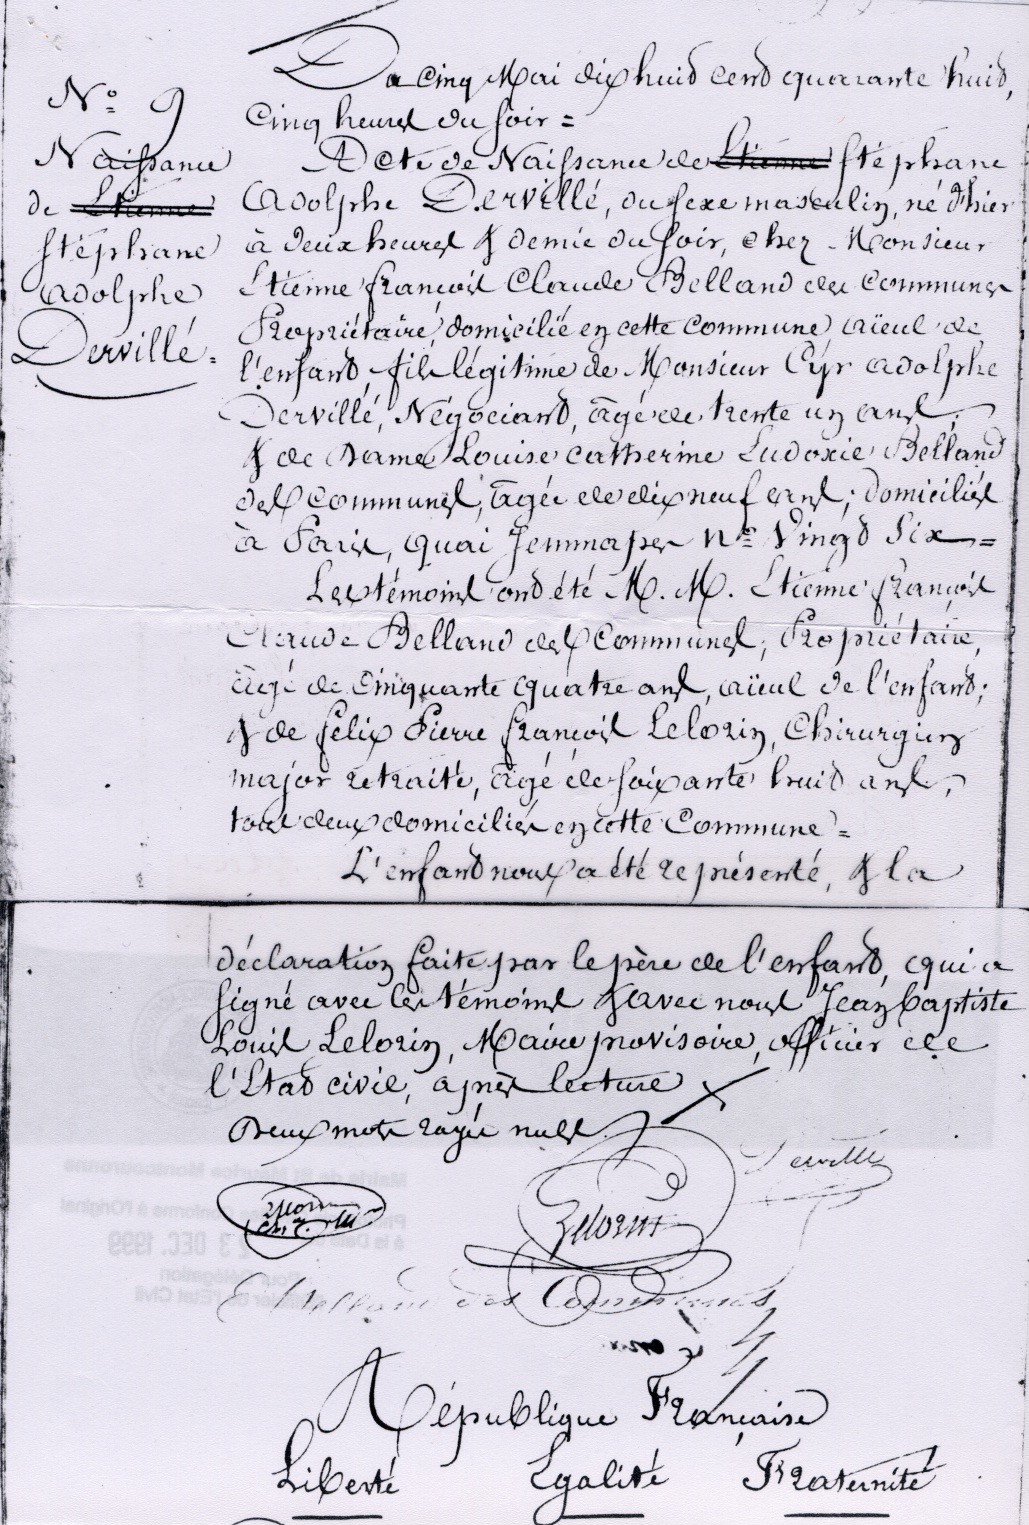 N° 9
Naissance
de Etienne
Stéphane
Adolphe
Dervillé.
Du cinq Mai dix huit cent quarante huit,
cinq heures du soir =
Acte de Naissance de Etienne Stéphane
Adolphe Dervillé, du sexe masculin, né d'hier
à deux heures & demie du soir, chez Monsieur
Etienne François Claude Belland des Communes
Propriétaire, domicilié en cette commune, aïeul de
l'enfant, fils légitime de Monsieur Cyr Adolphe
Dervillé, Négociant, âgé de trente un ans,
& de Dame Louise Catherine Ludoxie Belland
des Communes, âgée de dix neuf ans; domiciliés
à Paris, quai Jemmapes n° Vingt Six =
Les témoins ont été M. M. Etienne François
Claude Belland des Communes, Propriétaire,
âgé de cinquante quatre ans, aïeul de l'enfant;
& de Félix Pierre François Lelorin, Chirurgien
major retraité, âgé de soixante huit ans,
tous deux domiciliés en cette Commune =
L'enfant nous a été représenté, & la
déclaration faite par le père de l'enfant, qui a
signé avec les témoins & avec nous Jean Baptiste
Louis Lelorin, Maire provisoire, officier de
l'Etat civil, après lecture
Deux mots rayés nuls.
Dervillé
Lelorin
E Belland des Communes
Mairie de St Maurice Montcouronne
Conforme à l'Original
à la Date
3 DEC. 1999
Pour Délégation
de l'Etat Civil
République Française
Liberté Egalité Fraternité